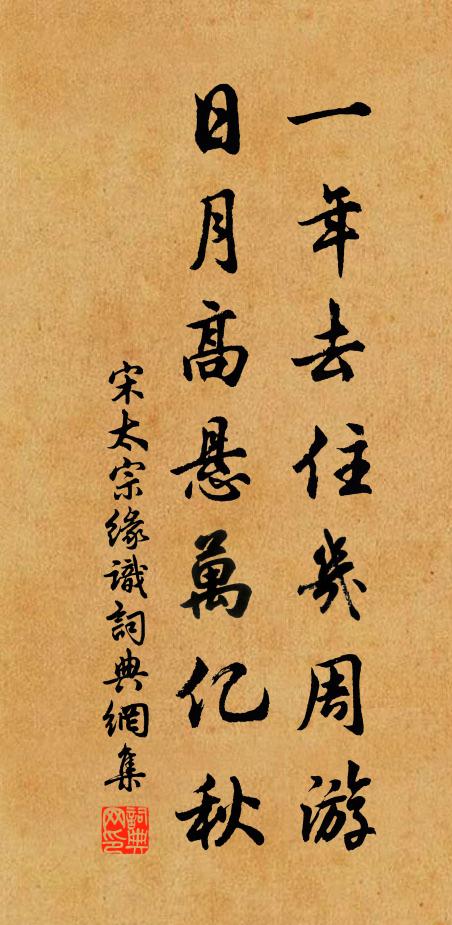 一年去住幾周游
日月高悬萬亿秋
宋太宗緣識詞典網集
詞典网印